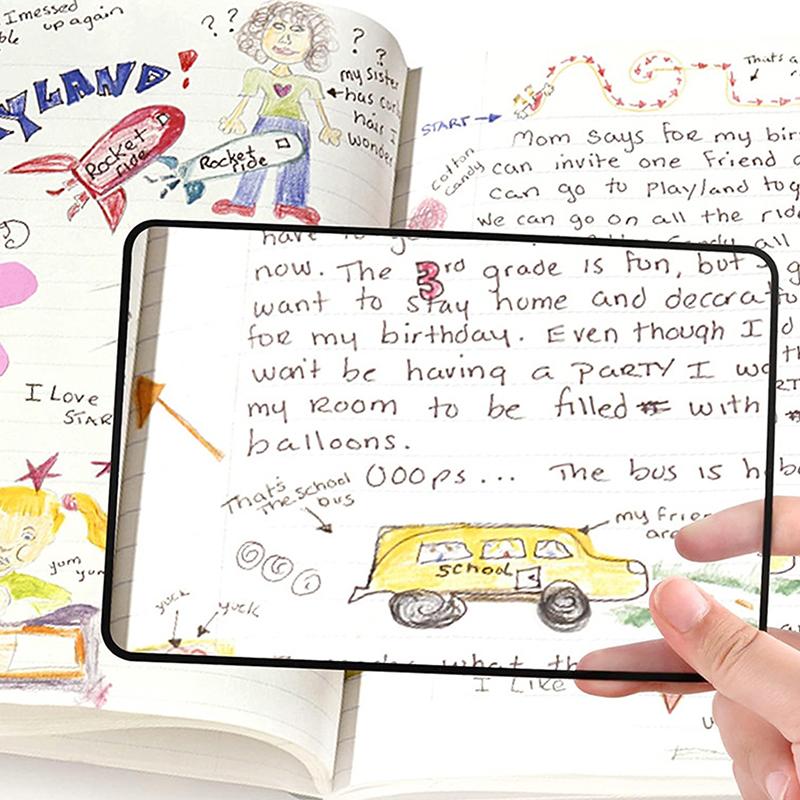 I messed
up again
YLAND!
? ?
? ?
my sister
has
hair I
wonder
Rocket
ride
Rocket
ride
I Love
STAR
yum
START
That's a
cotton
candy
Mom says for my bir
can invite one friend
can go to Playland tog
we can go on all the rid
all
have to go
now. The 3rd grade is fun, but
want to stay home and decorat
for my birthday. Even though I
won't be having a PARTY I wo
my Room to be filled with
balloons.
OOOps... The bus is h
That's
The school
bus
my frien
are
school
yuck
yuck
what th
I Like